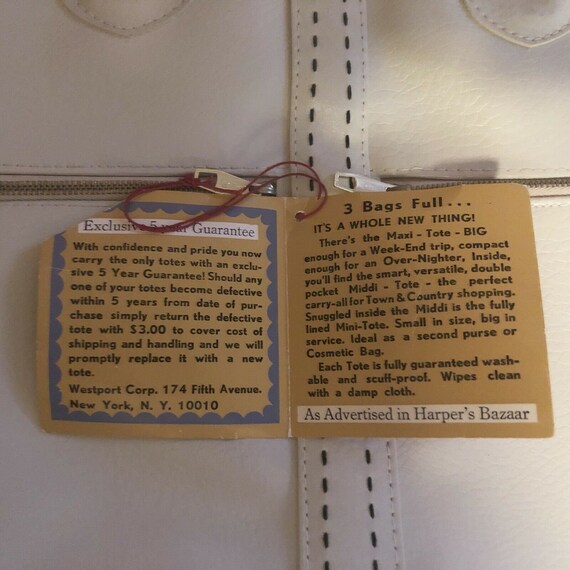 Exclusive 5 year Guarantee
With confidence and pride you now
carry the only totes with an exclu-
sive 5 Year Guarantee! Should any
one of your totes become defective
within 5 years from date of pur-
chase simply return the defective
tote with $3.00 to cover cost of
shipping and handling and we will
promptly replace it with a new
tote.
Westport Corp. 174 Fifth Avenue.
New York, N. Y. 10010
3 Bags Full...
IT'S A WHOLE NEW THING!
There's the Maxi - Tote - BIG
enough for a Week-End trip, compact
enough for an Over-Nighter, Inside,
you'll find the smart, versatile, double
pocket Middi - Tote - the perfect
carry-all for Town & Country shopping.
Snuggled inside the Middi is the fully
lined Mini-Tote. Small in size, big in
service. Ideal as a second purse or
Cosmetic Bag.
Each Tote is fully guaranteed wash-
able and scuff-proof. Wipes clean
with a damp cloth.
As Advertised in Harper's Bazaar